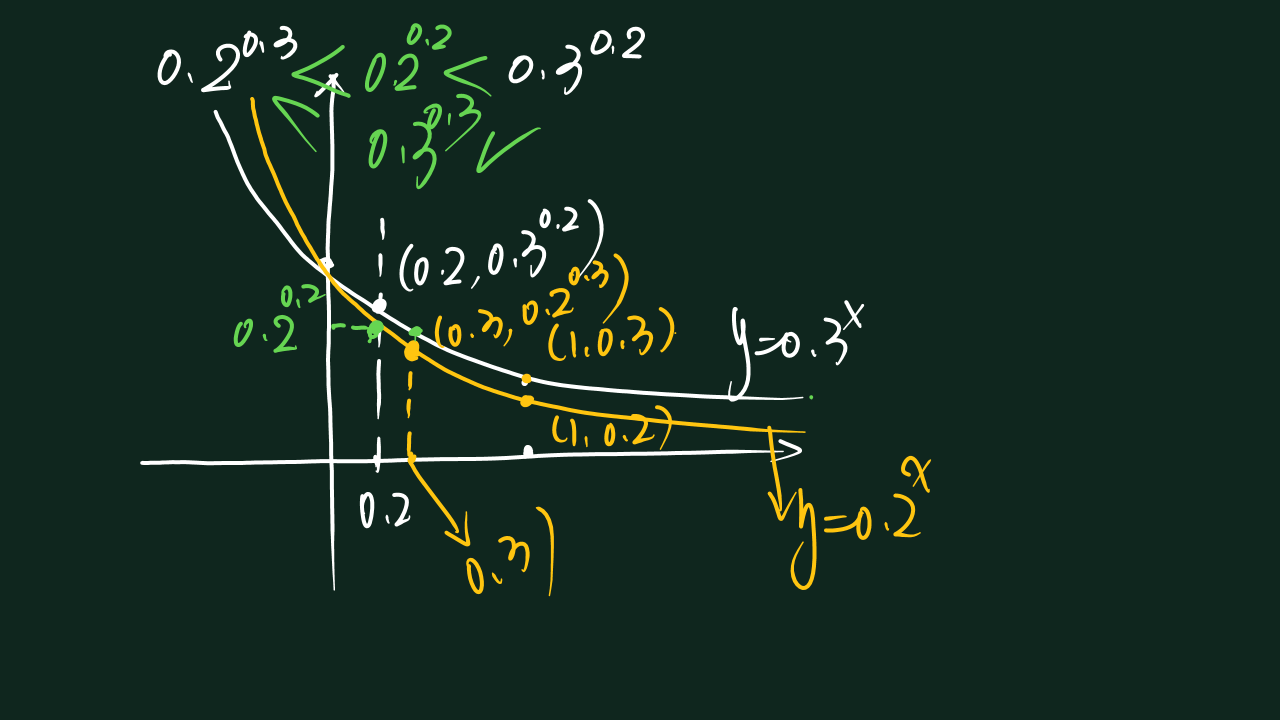 0.2^0.3 < 0.2^0.2 < 0.3^0.2
< 0.3^0.3 ✓
(0.2, 0.3^0.2)
0.2^0.2
(0.3, 0.2^0.3)
(1, 0.3)
y=0.3^x
(1, 0.2)
0.2
y=0.2^x
0.3